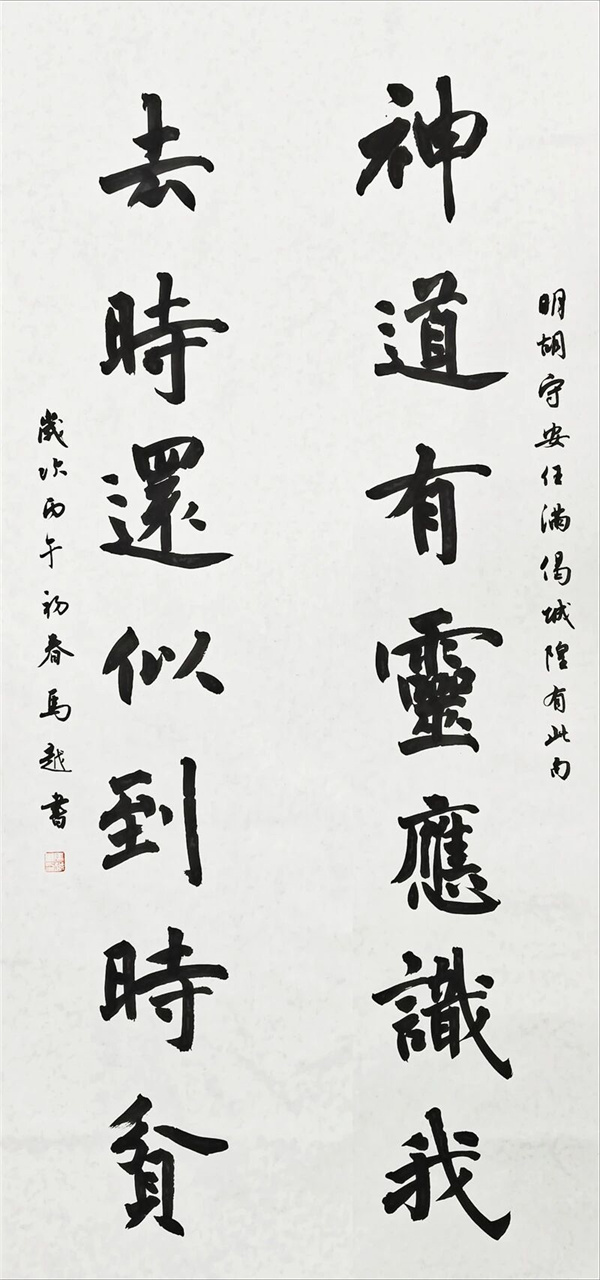 明胡守安任滿謁城隍有此句
神道有靈應識我
去時還似到時貧
歲次丙午初春馬越書